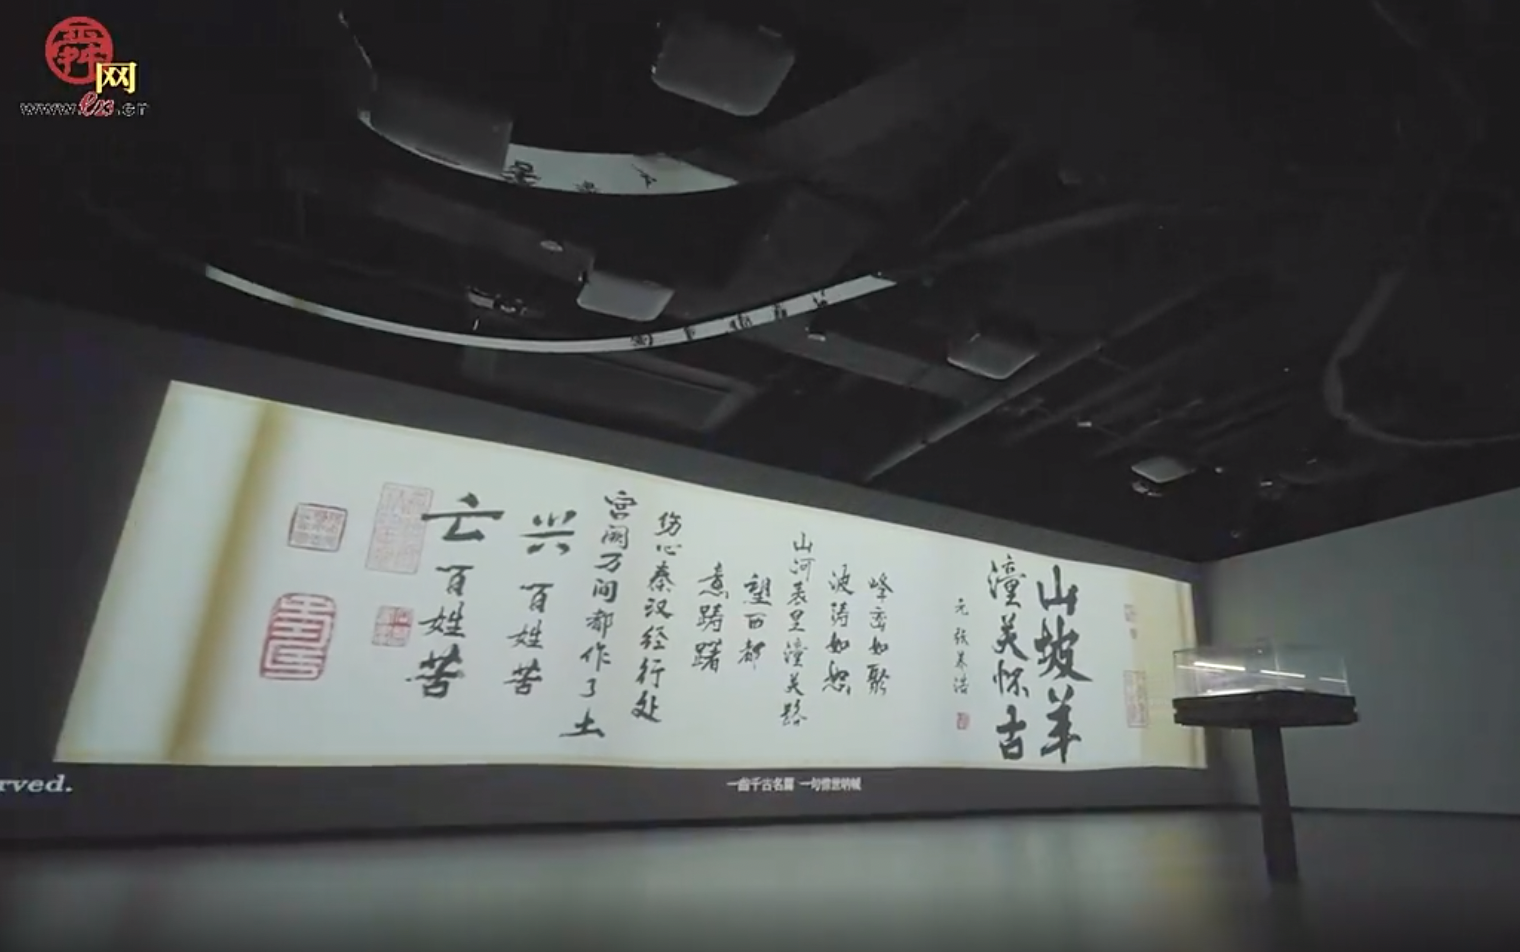 舜网
www.e23.cn
山坡羊
潼关怀古
元 张养浩
峰峦如聚
波涛如怒
山河表里潼关路
望西都
意踌躇
伤心秦汉经行处
宫阙万间都作了土
兴 百姓苦
亡 百姓苦
rved.
一曲千古名篇 一句惊世呐喊